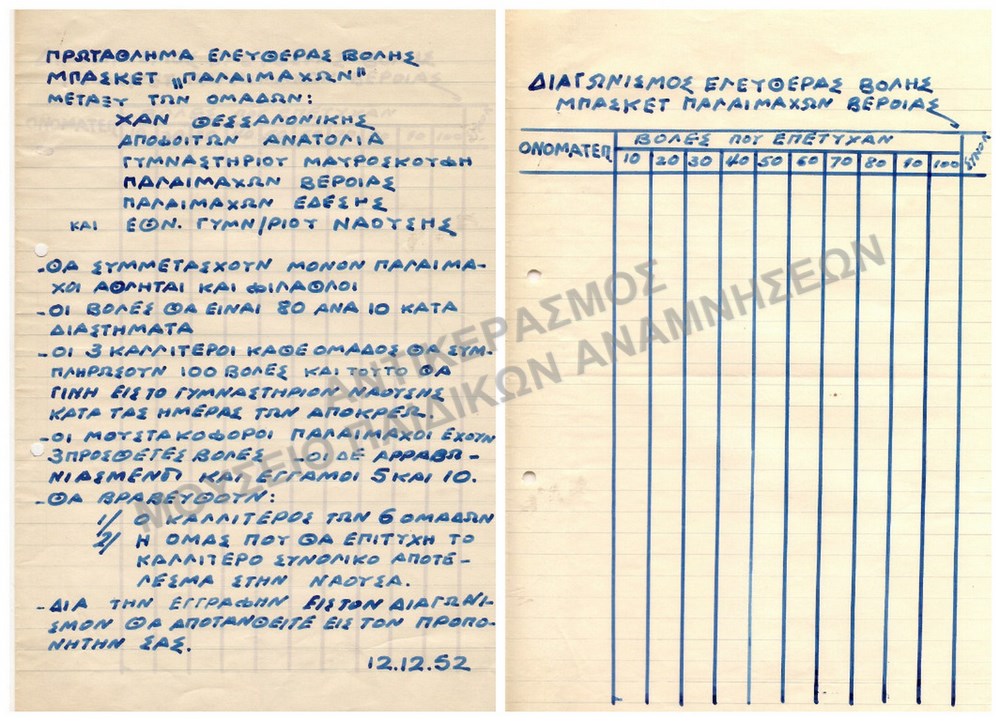 ΠΡΩΤΑΘΛΗΜΑ ΕΛΕΥΘΕΡΑΣ ΒΟΛΗΣ
ΜΠΑΣΚΕΤ „ΠΑΛΑΙΜΑΧΩΝ"
ΜΕΤΑΞΥ ΤΩΝ ΟΜΑΔΩΝ:
ΧΑΝ ΘΕΣΣΑΛΟΝΙΚΗΣ
ΑΠΟΦΟΙΤΩΝ ΑΝΑΤΟΛΙΑ
ΓΥΜΝΑΣΤΗΡΙΟΥ ΜΑΥΡΟΣΚΟΥΦΗ
ΠΑΛΑΙΜΑΧΩΝ ΒΕΡΟΙΑΣ
ΠΑΛΑΙΜΑΧΩΝ ΕΔΕΣΗΣ
ΚΑΙ ΕΘΝ. ΓΥΜΝ/ΡΙΟΥ ΝΑΟΥΣΗΣ
-ΘΑ ΣΥΜΜΕΤΑΣΧΟΥΝ ΜΟΝΟΝ ΠΑΛΑΙΜΑ-
ΧΟΙ ΑΘΛΗΤΑΙ ΚΑΙ ΦΙΛΑΘΛΟΙ
-ΟΙ ΒΟΛΕΣ ΘΑ ΕΙΝΑΙ 80 ΑΝΑ 10 ΚΑΤΑ
ΔΙΑΣΤΗΜΑΤΑ
-ΟΙ 3 ΚΑΛΛΙΤΕΡΟΙ ΚΑΘΕ ΟΜΑΔΟΣ ΘΑ ΣΥΜ-
ΠΛΗΡΩΣΟΥΝ 100 ΒΟΛΕΣ ΚΑΙ ΤΟΥΤΟ ΘΑ
ΓΙΝΗ ΕΙΣ ΤΟ ΓΥΜΝΑΣΤΗΡΙΟΝ ΝΑΟΥΣΗΣ
ΚΑΤΑ ΤΑΣ ΗΜΕΡΑΣ ΤΩΝ ΑΠΟΚΡΕΩ.
-ΟΙ ΜΟΥΣΤΑΚΟΦΟΡΟΙ ΠΑΛΑΙΜΑΧΟΙ ΕΧΟΥΝ
3 ΠΡΟΣΘΕΤΕΣ ΒΟΛΕΣ -ΟΙ ΔΕ ΑΡΡΑΒΩ-
ΝΙΑΣΜΕΝΟΙ ΚΑΙ ΕΓΓΑΜΟΙ 5 ΚΑΙ 10.
-ΘΑ ΒΡΑΒΕΥΘΟΥΝ:
1/ Ο ΚΑΛΛΙΤΕΡΟΣ ΤΩΝ 6 ΟΜΑΔΩΝ
2/ Η ΟΜΑΣ ΠΟΥ ΘΑ ΕΠΙΤΥΧΗ ΤΟ
ΚΑΛΛΙΤΕΡΟ ΣΥΝΟΛΙΚΟ ΑΠΟΤΕ-
ΛΕΣΜΑ ΣΤΗΝ ΝΑΟΥΣΑ.
-ΔΙΑ ΤΗΝ ΕΓΓΡΑΦΗΝ ΕΙΣ ΤΟΝ ΔΙΑΓΩΝΙ
ΣΜΟΝ ΘΑ ΑΠΟΤΑΝΘΕΙΤΕ ΕΙΣ ΤΟΝ ΠΡΟΠΟ-
ΝΗΤΗΝ ΣΑΣ.
12.12.52
ΔΙΑΓΩΝΙΣΜΟΣ ΕΛΕΥΘΕΡΑΣ ΒΟΛΗΣ
ΜΠΑΣΚΕΤ ΠΑΛΑΙΜΑΧΩΝ ΒΕΡΟΙΑΣ
ΟΝΟΜΑΤΕΠ. ΒΟΛΕΣ ΠΟΥ ΕΠΕΤΥΧΑΝ
10 20 30 40 50 60 70 80 90 100
ΑΝΤΙΚΕΡΑΣΜΟΣ
ΜΟΥΣΕΙΟ ΠΑΙΔΙΚΩΝ ΑΝΑΜΝΗΣΕΩΝ